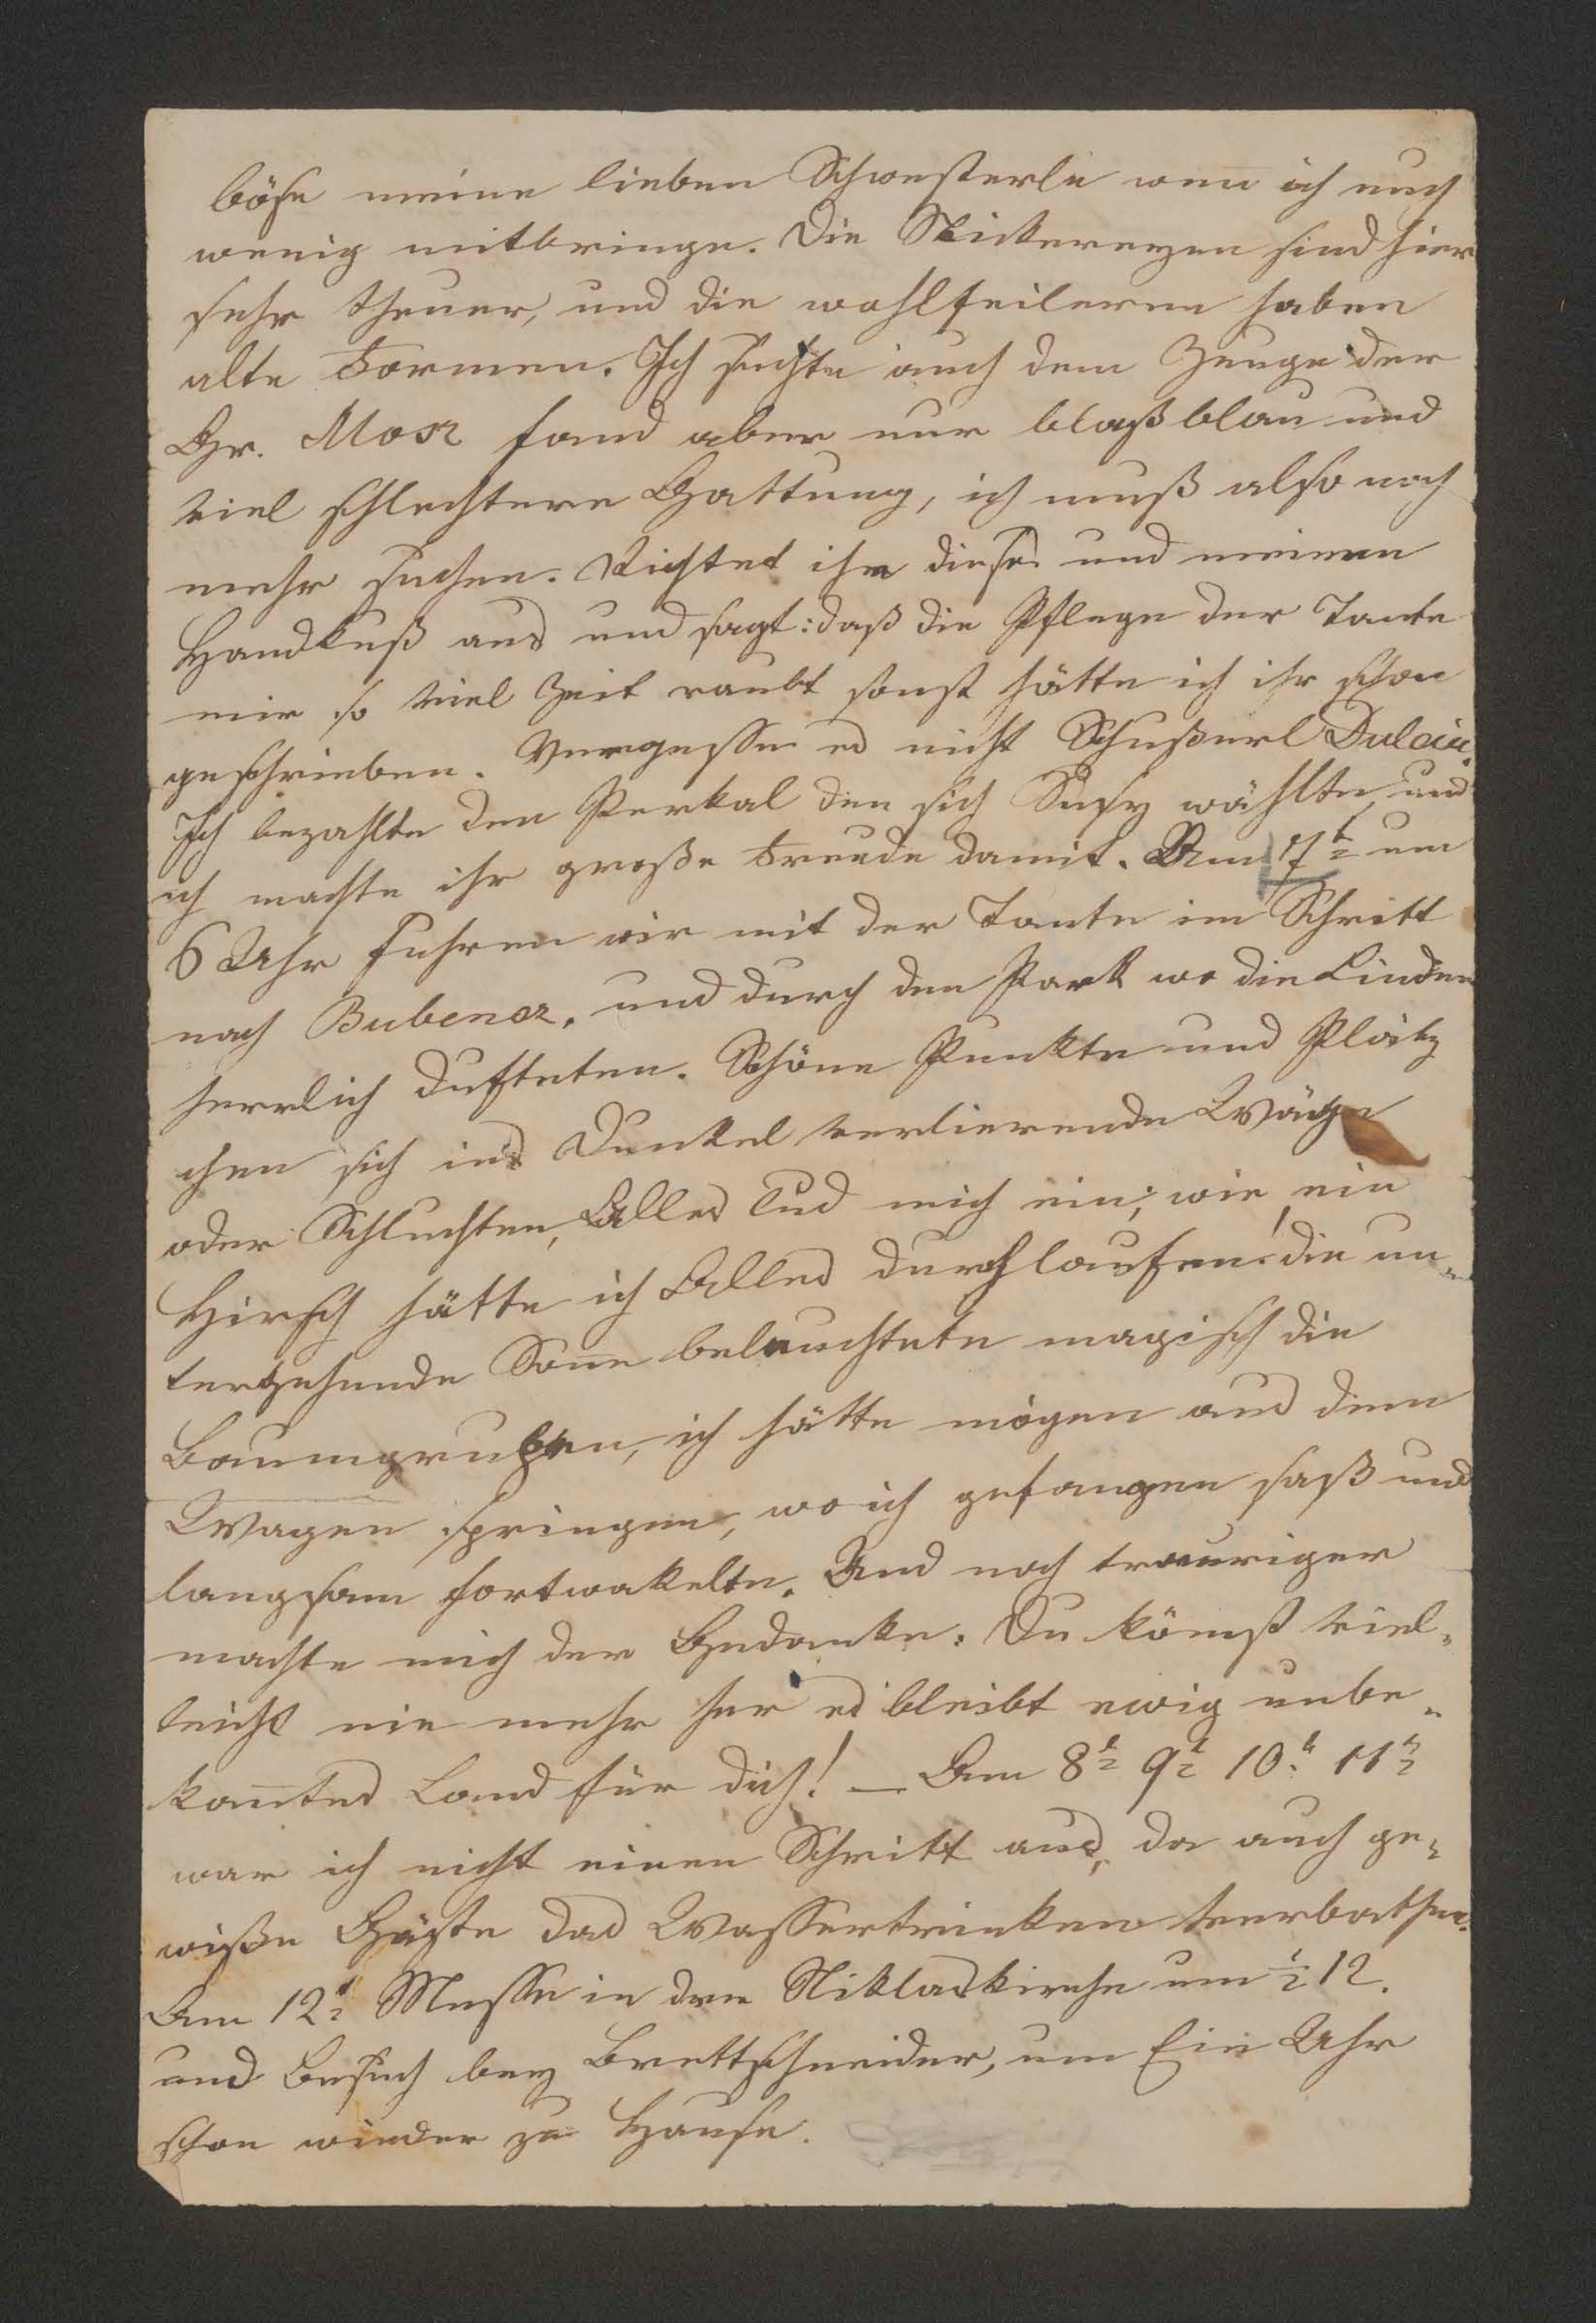 böse meine lieben Schwesterle weñ ich euch
wenig mitbringe. Die Stickereyen sind hier
sehr theuer, und die wohlfeileren haben
alte Formen. Ich suchte auch dem Zeuge der
Gr. Mosz fand aber nur blaßblau und
viel schlechtere Gattung, ich muß also noch
mehr suchen. Richtet ihr dieses und meinen
Handkuß aus und sagt: daß die Pflege der Tante
mir so viel Zeit raubt sonst hätte ich ihr schon
geschrieben. Vergesse es nicht Schußerl
Ich bezahlte den Perkal den sich Susy wählte, und
ich machte ihr große Freude damit. Am 7t um
6 Uhr fuhren wir mit der Tante im Schritt
nach Bubencz, und durch den Park wo die Linden
herrlich dufteten. Schöne Punkte und Plätz
chen sich ins Dunkel verlierende Wäge
oder Schluchten, Alles lud mich ein; wie ein
Hirsch hätte ich Alles durchlaufen! die un-
tergehende Soñe beleuchtete magisch die
Baumgrupen, ich hätte mögen aus dem
Wagen springen, wo ich gefangen saß und
langsam fortwakelte. Und noch trauriger
machte mich der Gedanke: Du köm̄st viel-
leicht nie mehr her es bleibt ewig unbe-
kañtes Land für dich! — Am 8t 9t 10t 11t
war ich nicht einen Schritt aus, da auch ge-
wiße Gäste das Wassertrinken verbathen.
Am 12t Messe in der Niklaskirche um ½ 12.
und Besuch bey Brettschneider, um Ein Uhr
schon wieder zu Hause.